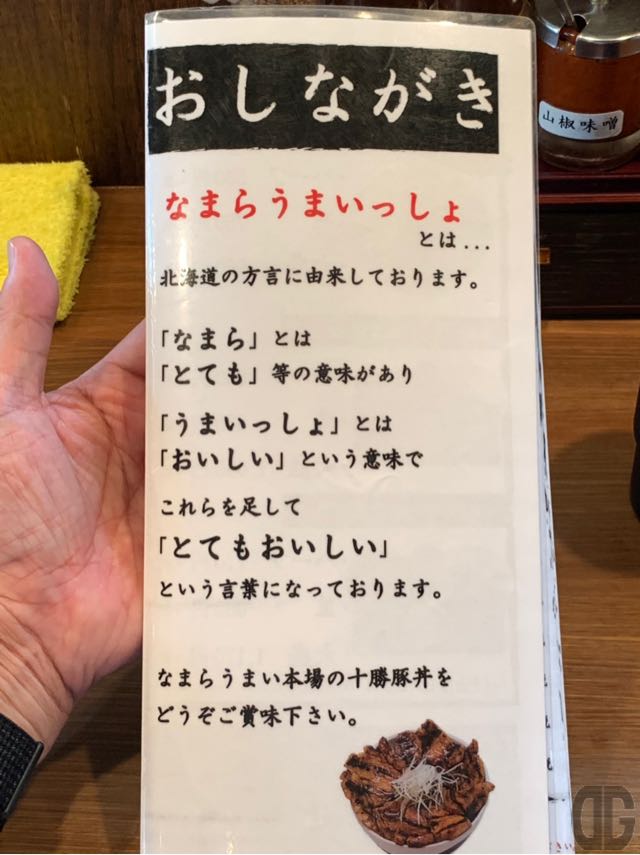 おしながき
山椒味噌
なまらうまいっしょ
とは...
北海道の方言に由来しております。
「なまら」とは
「とても」等の意味があり
「うまいっしょ」とは
「おいしい」という意味で
これらを足して
「とてもおいしい」
という言葉になっております。
なまらうまい本場の十勝豚丼を
どうぞご賞味下さい。
DG